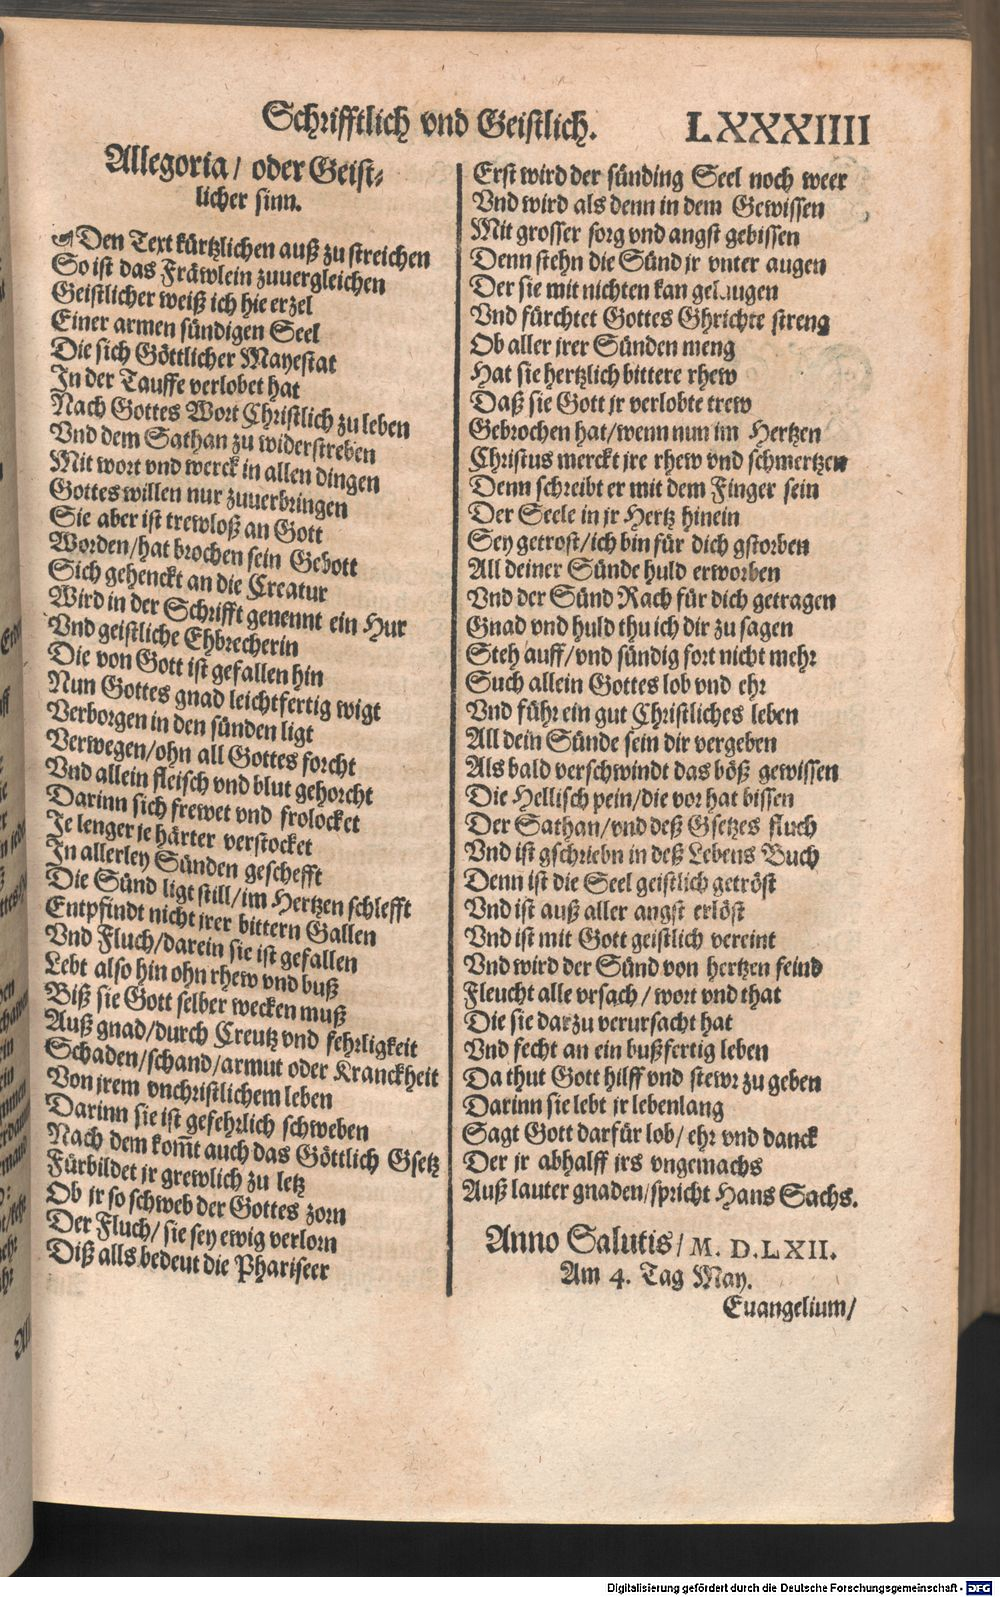 Schrifftlich vnd Geistlich. LXXXIIII
Allegoria/ oder Geist⸗
licher sinn.
Den Text kürtzlichen auß zu streichen
So ist das Fräwlein zuuergleichen
Geistlicher weiß ich hie erzel
Einer armen sündigen Seel
Die sich Göttlicher Mayestat
In der Tauffe verlobet hat
Nach Gottes Wort Christlich zu leben
Vnd dem Sathan zu widerstreben
Mit wort vnd werck in allen dingen
Gottes willen nur zuuerbringen
Sie aber ist trewloß an Gott
Worden/hat brochen sein Gebott
Sich gehenckt an die Creatur
Wird in der Schrifft genennt ein Hur
Vnd geistliche Ehbrecherin
Die von Gott ist gefallen hin
Nun Gottes gnad leichtfertig wigt
Verborgen in den sünden ligt
Verwegen/ohn all Gottes forcht
Vnd allein fleisch vnd blut gehorcht
Darinn sich frewet vnd frolocket
Je lenger je härter verstocket
In allerley Sünden geschefft
Die Sünd ligt still/im Hertzen schlefft
Entpfindt nicht jrer bittern Gallen
Vnd Fluch/darein sie ist gefallen
Lebt also hin ohn rhew vnd buß
Biß sie Gott selber wecken muß
Auß gnad/durch Creutz vnd fehrligkeit
Schaden/schand/armut oder Kranckheit
Von jrem vnchristlichem leben
Darinn sie ist gefehrlich schweben
Nach dem kom̃t auch das Göttlich Gsetz
Fürbildet jr grewlich zu letz
Ob jr so schweb der Gottes zorn
Der Fluch/ sie sey ewig verlorn
Diß alls bedeut die Phariseer
Erst wird der sünding Seel noch weer
Vnd wird als denn in dem Gewissen
Mit grosser sorg vnd angst gebissen
Denn stehn die Sünd jr vnter augen
Der sie mit nichten kan gelaugen
Vnd fürchtet Gottes Ghrichte streng
Ob aller jrer Sünden meng
Hat sie hertzlich bittere rhew
Daß sie Gott jr verlobte trew
Gebrochen hat/wenn nun im Hertzen
Christus merckt jre rhew vnd schmertzen
Denn schreibt er mit dem Finger sein
Der Seele in jr Hertz hinein
Sey getrost/ich bin für dich gstorben
All deiner Sünde huld erworben
Vnd der Sünd Rach für dich getragen
Gnad vnd huld thu ich dir zu sagen
Steh auff/vnd sündig fort nicht mehr
Such allein Gottes lob vnd ehr
Vnd führ ein gut Christliches leben
All dein Sünde sein dir vergeben
Als bald verschwindt das böß gewissen
Die Hellisch pein/die vor hat bissen
Der Sathan/vnd deß Gsetzes fluch
Vnd ist gschriebn in deß Lebens Buch
Denn ist die Seel geistlich getröst
Vnd ist auß aller angst erlöst
Vnd ist mit Gott geistlich vereint
Vnd wird der Sünd von hertzen feind
Fleucht alle vrsach/ wort vnd that
Die sie darzu verursacht hat
Vnd fecht an ein bußfertig leben
Da thut Gott hilff vnd stewr zu geben
Darinn sie lebt jr lebenlang
Sagt Gott darfür lob/ ehr vnd danck
Der jr abhalff jrs vngemachs
Auß lauter gnaden/spricht Hans Sachs.
Anno Salutis/ M. D. LXII.
Am 4. Tag May.
Euangelium/
Digitalisierung gefördert durch die Deutsche Forschungsgemeinschaft - DFG